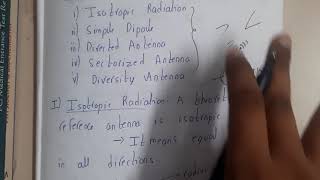 i) Isotropic Radiation
ii) Simple Dipole
iii) Diverted Antenna
iv) Sectorized Antenna
v) Diversity Antenna
I) Isotropic Radiation: A
reference antenna is isotropic
→ It means equal
in all directions.